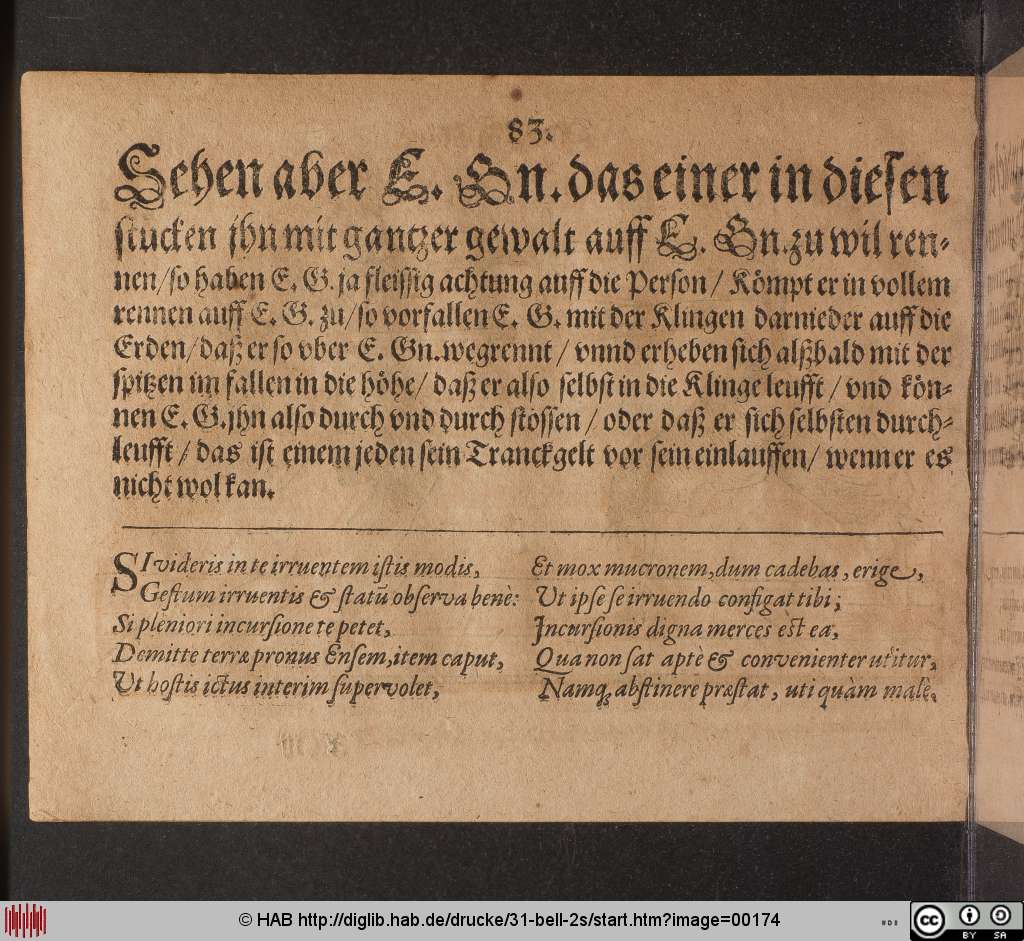 83.
Sehen aber E. Gn. das einer in diesen
stucken jhn mit gantzer gewalt auff E. Gn. zu wil ren-
nen/ so haben E. G. ja fleissig achtung auff die Person / Kömpt er in vollem
rennen auff E. G. zu/ so vorfallen E. G. mit der Klingen darnieder auff die
Erden/ daß er so vber E. Gn. wegrennt / vnnd erheben sich alßbald mit der
spitzen im fallen in die höhe/ daß er also selbst in die Klinge leufft / vnd kön-
nen E. G. jhn also durch vnd durch stossen / oder daß er sich selbsten durch-
leufft / das ist einem jeden sein Tranckgelt vor sein einlauffen/ wenn er es
nicht wol kan.
SI videris in te irruentem istis modis,
Gestum irruentis & statū observa benè:
Si pleniori incursione te petet,
Demitte terræ pronus Ensem, item caput,
Ut hostis ictus interim supervolet,
Et mox mucronem, dum cadebas, erige,
Ut ipse se irruendo configat tibi;
Incursionis digna merces est ea,
Qua non sat aptè & convenienter utitur,
Namq; abstinere præstat, uti quàm malè.
© HAB http://diglib.hab.de/drucke/31-bell-2s/start.htm?image=00174
cc BY SA